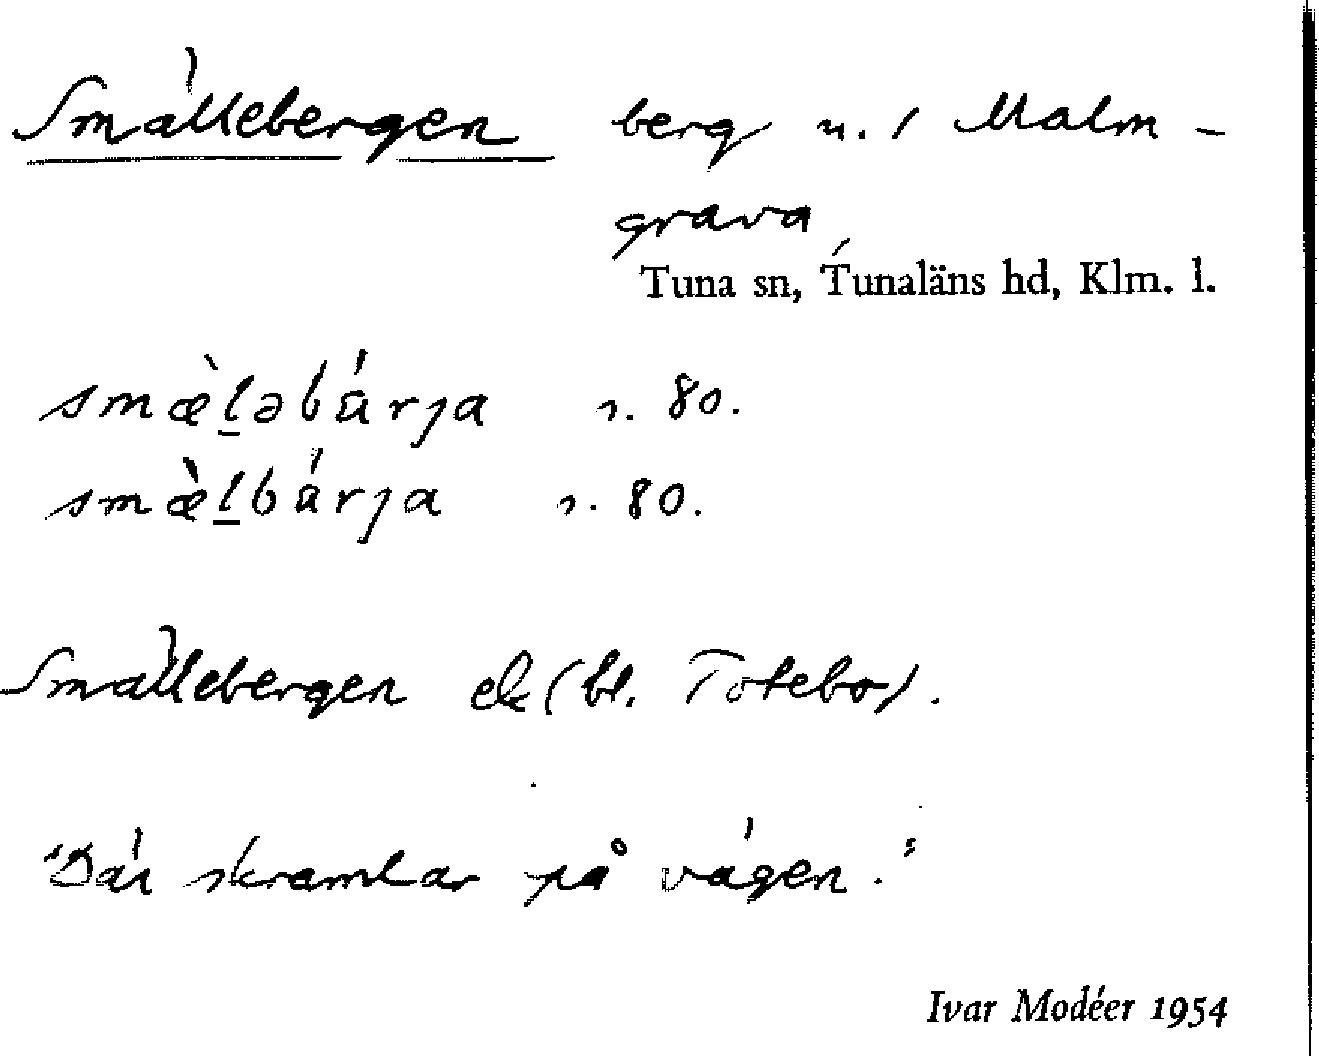 Smällebergen berg n. / Malm-
grava
Tuna sn, Tunaläns hd, Klm. l.
smæ̀ḻəbárja s. 80.
smæ̀ḻbárja s. 80.
Smällebergen ek (bl. Totebo).
"Där skramlar på vägen."
Ivar Modéer 1954